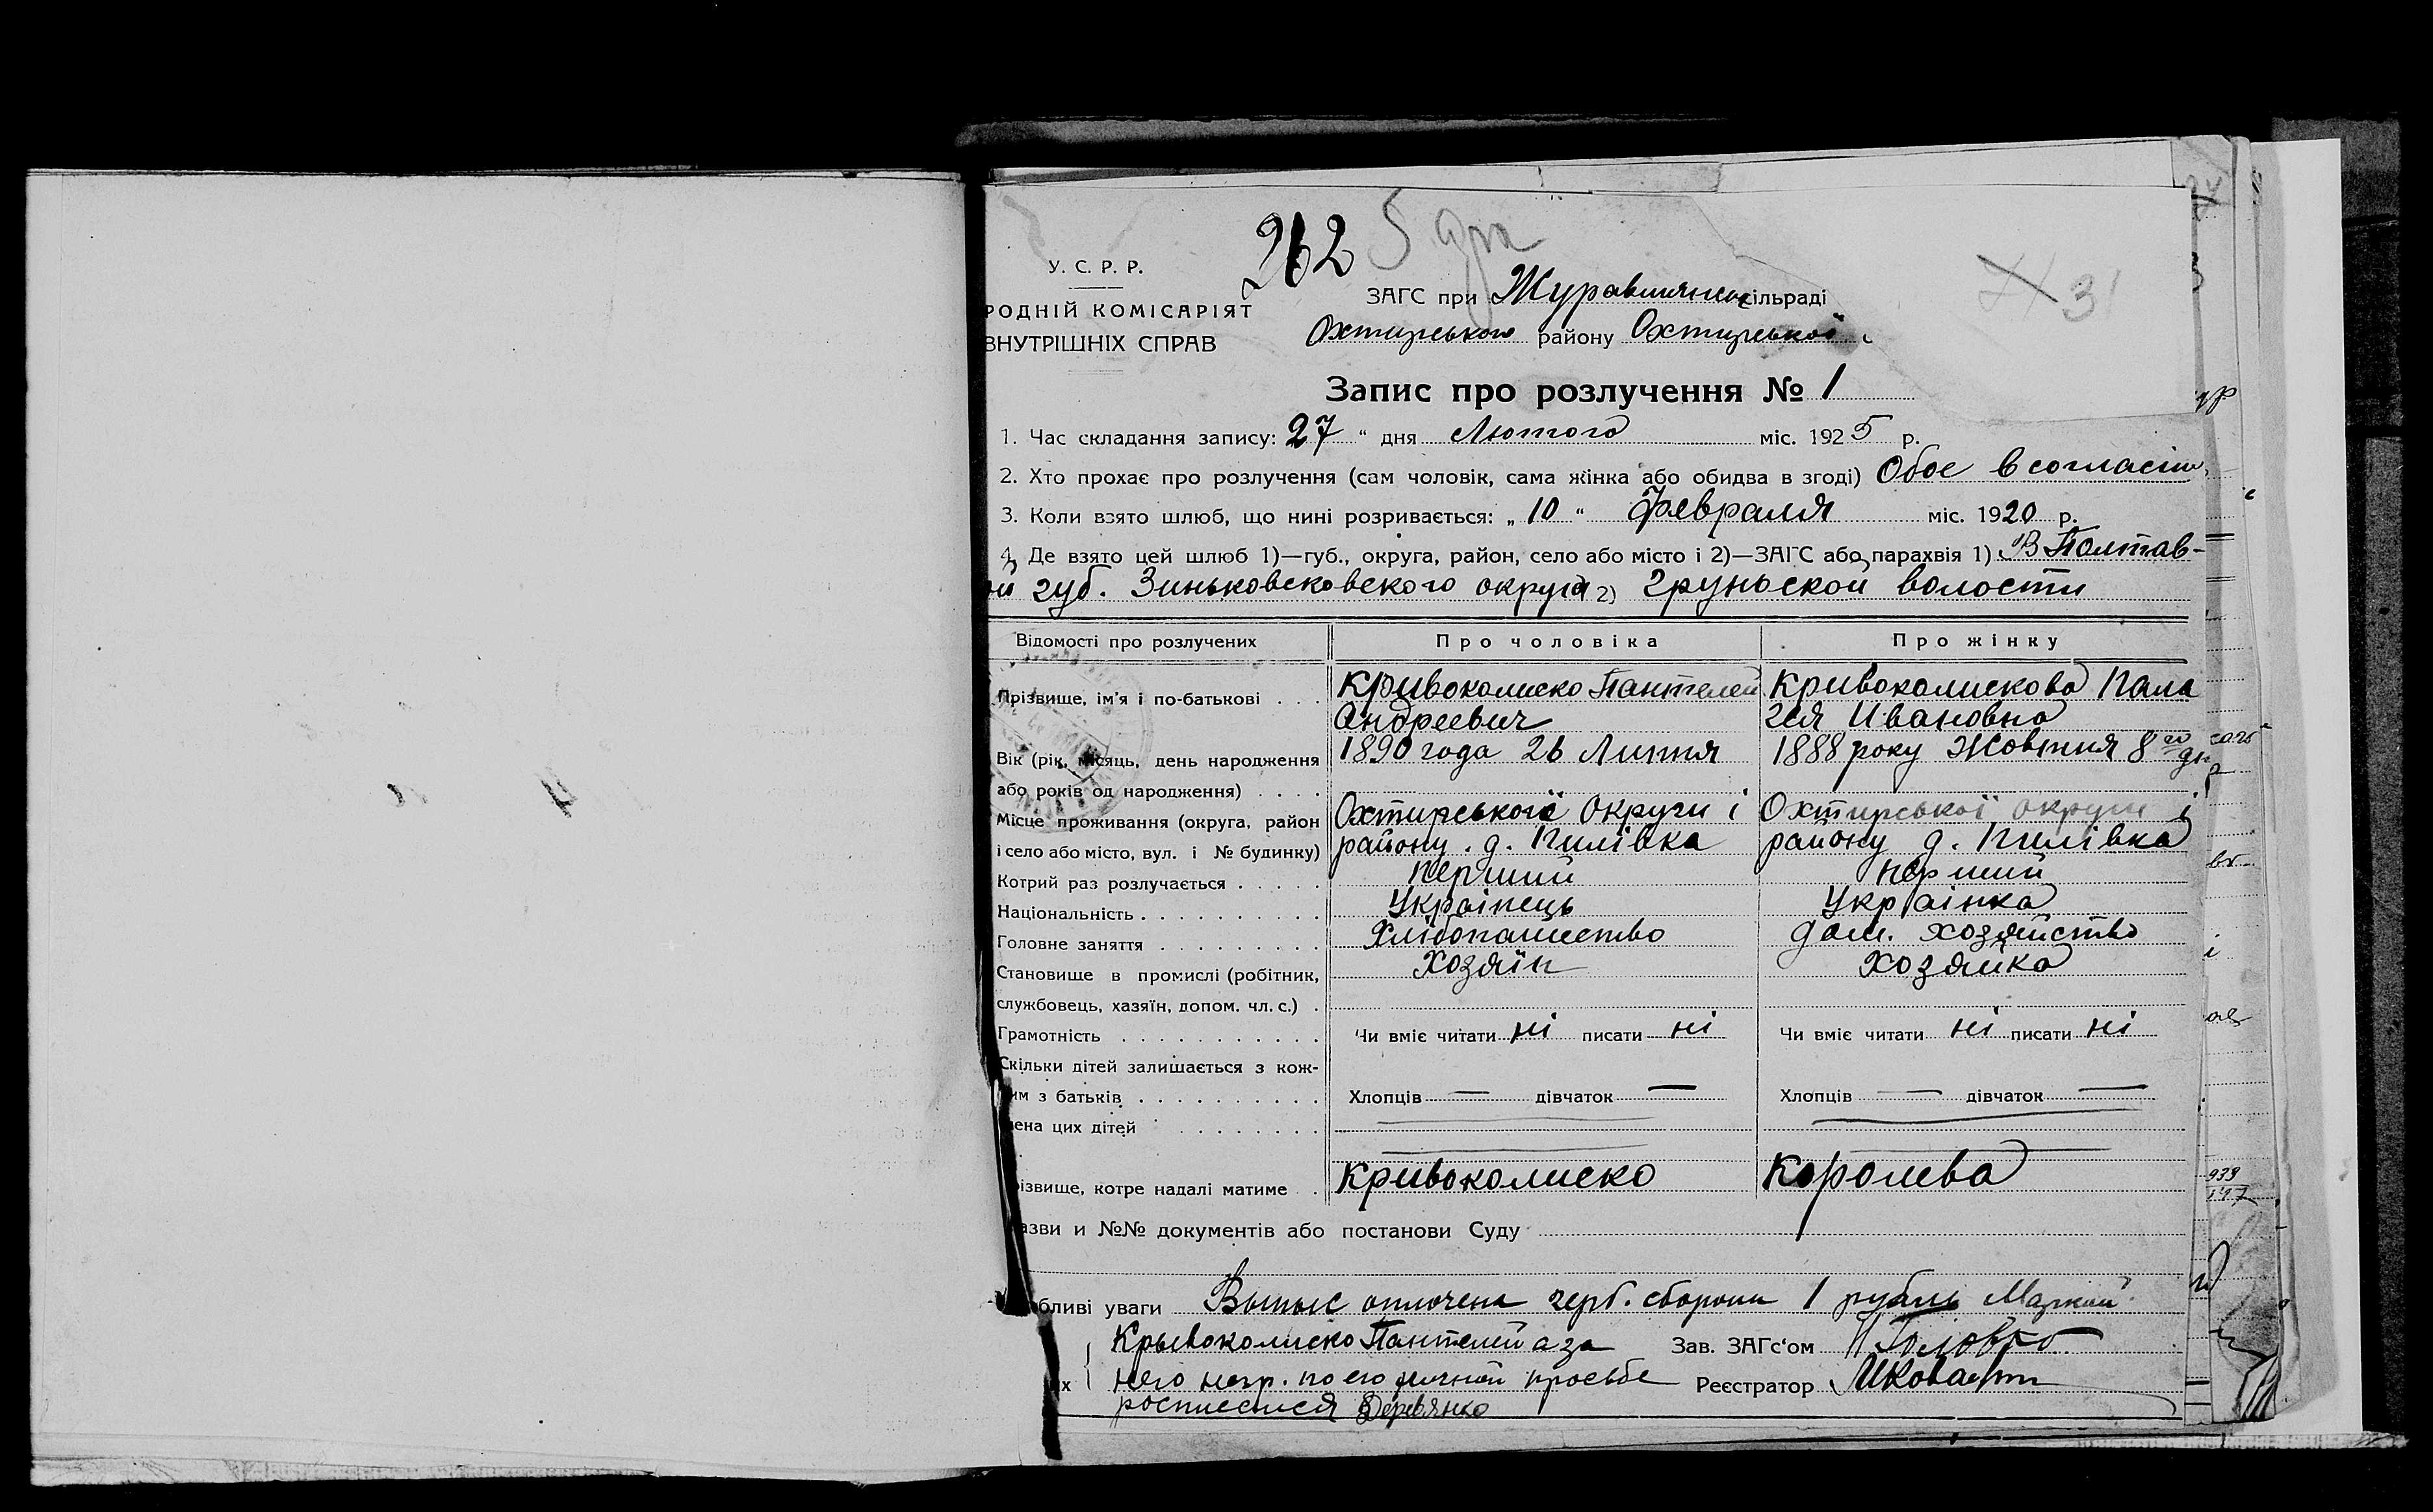 262
У. С. Р. Р.
РОДНІЙ КОМІСАРІЯТ
ВНУТРІШНІХ СПРАВ
ЗАГС при сільраді
Охтирського району Охтирської
Запис про розлучення № 1
1. Час складання запису: 27 " дня Лютого міс. 1925 р.
2. Хто прохає про розлучення (сам чоловік, сама жінка або обидва в згоді) Обое в согласіи
3. Коли взято шлюб, що нині розривається: „ 10 " Февраля міс. 1920 р.
4. Де взято цей шлюб 1)—губ., округа, район, село або місто і 2)—ЗАГС або парахвія 1) В Полтав-
ой губ. Зиньковсковского округа 2) Груньской волости
Відомості про розлучених Про чоловіка Про жінку
Прізвище, ім'я і по-батькові . . . Кривоколиско Пантелей Кривоколискова Пала
Андреевич гея Ивановна
Вік (рік, місяць, день народження 1890 года 26 Липня 1888 року Жовтня 8го дн
або років од народження) . . . .
Місце проживання (округа, район Охтирської Округи і Охтирської округи і
і село або місто, вул. і № будинку) району . д. Пилівка району д. Пилівка
Котрий раз розлучається . . . . . перший перший
Національність . . . . . . . . . . Українець Українка
Головне заняття . . . . . . . . . Хлібопашество дом. хозяйство
Становище в промислі (робітник, Хозяїн Хозяйка
службовець, хазяїн, допом. чл. с.) .
Грамотність . . . . . . . . . . . Чи вміє читати ні писати ні Чи вміє читати ні писати ні
Скільки дітей залишається з кож-
им з батьків . . . . . . . . . . Хлопців — дівчаток — Хлопців — дівчаток —
мена цих дітей . . . . . . . .
різвище, котре надалі матиме . . Кривоколиско Королева
азви и №№ документів або постанови Суду
бливі уваги оплочена герб. сбором 1 рубль
Крывоколиско Пантелей а за Зав. ЗАГс'ом Головко
х него негр. по его личной просьбе Реєстратор
росписался Деревянко